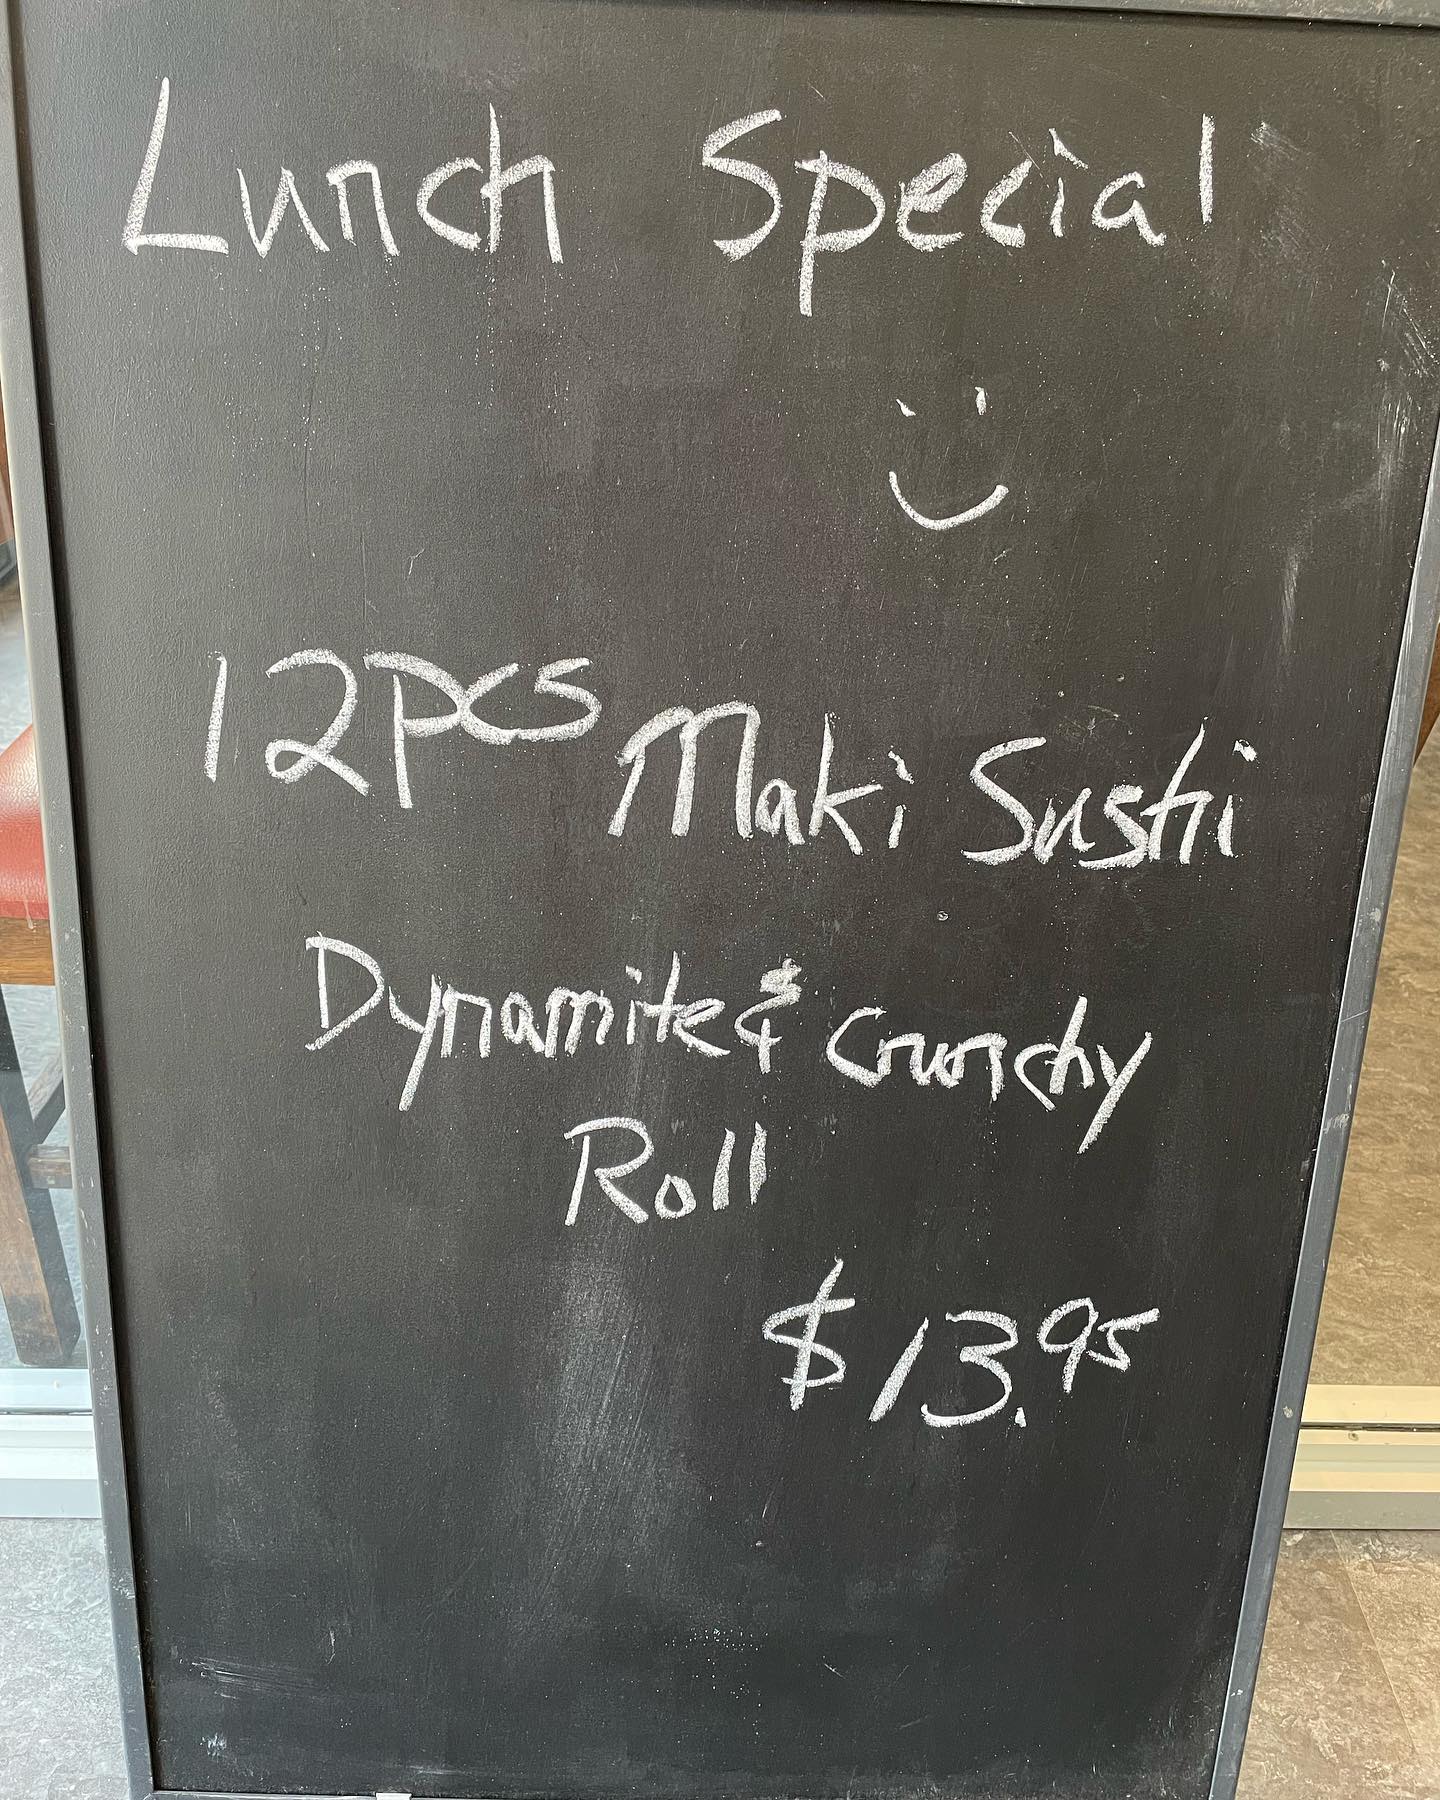 Lunch Special
12PCS Maki Sushi
Dynamite & Crunchy
Roll
$13.95